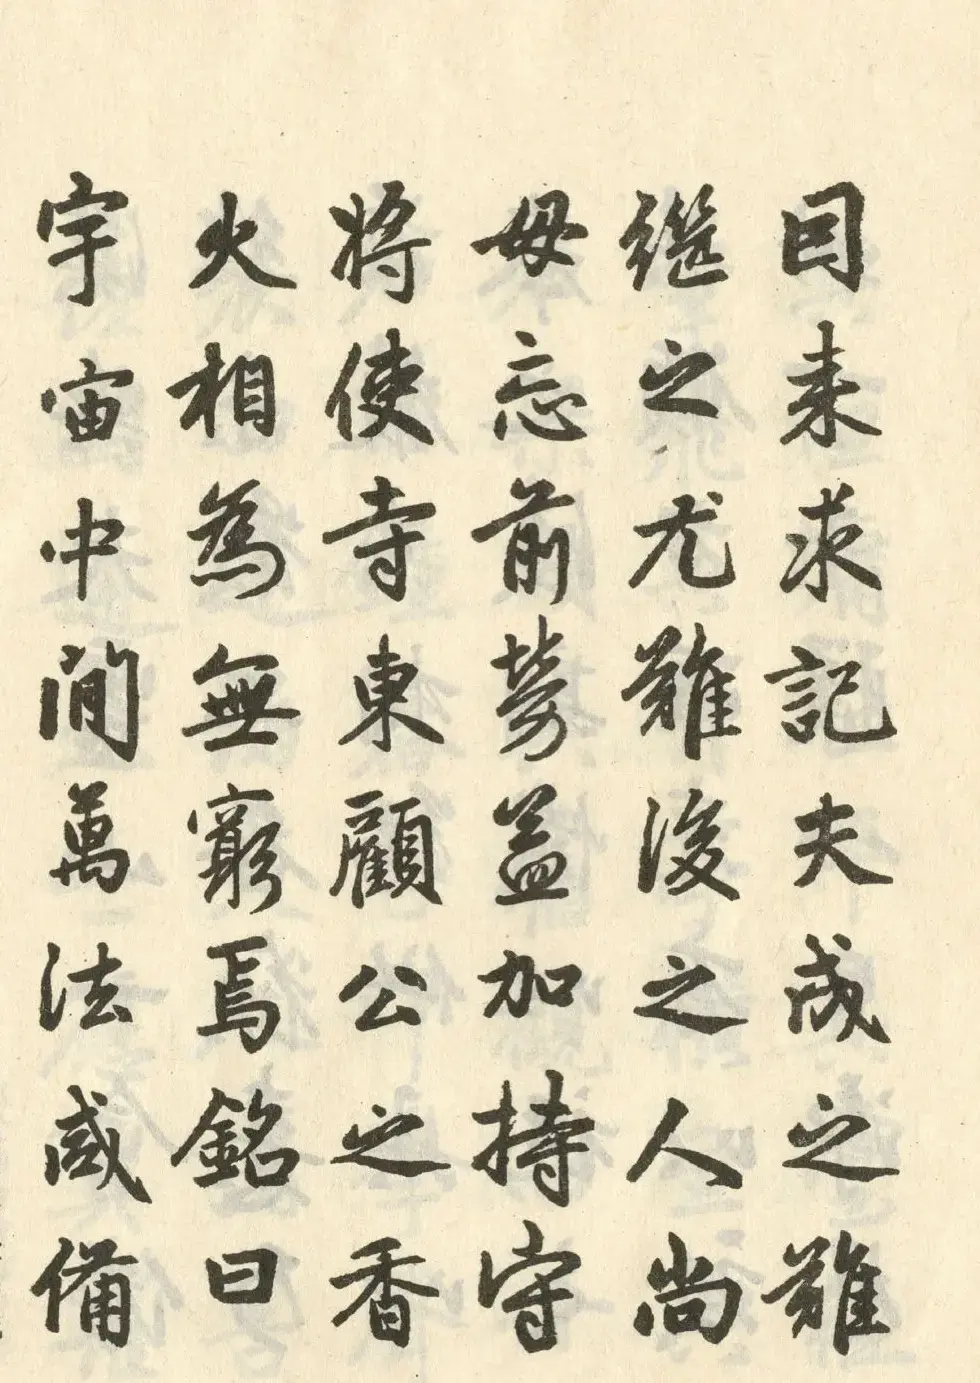 因来求記夫成之難
继之尤難後之人尚
毋忘前劳益加持守
将使寺東顧公之香
火相為無窮焉銘曰
宇宙中間萬法咸備